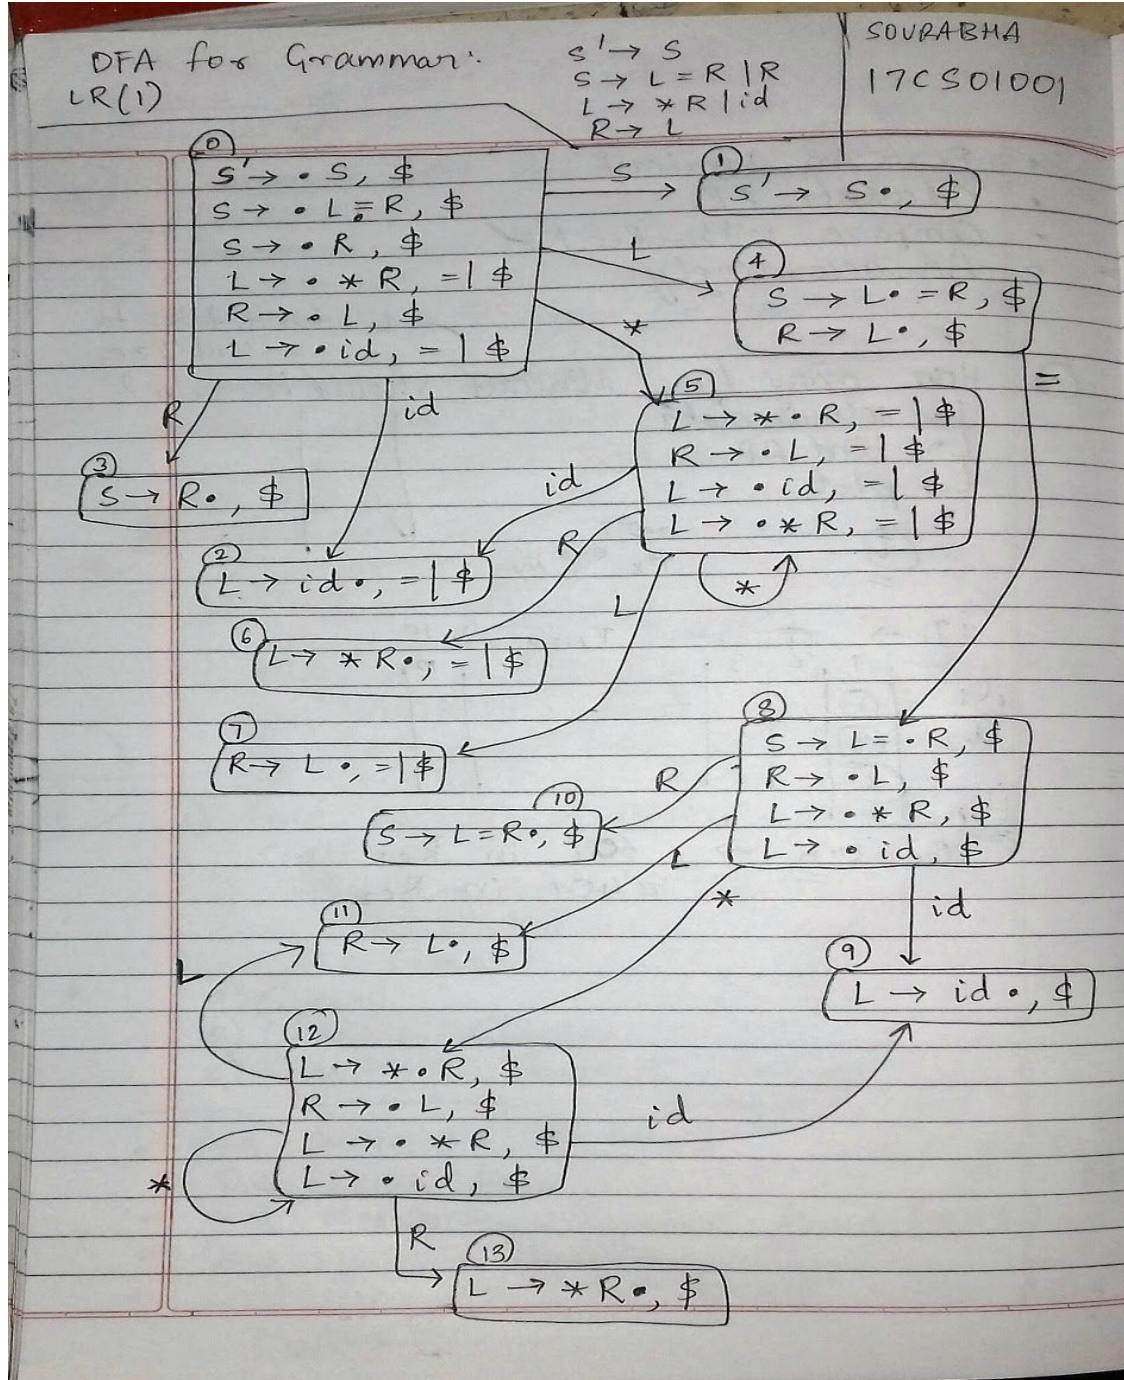 DFA for Grammar:
LR(1)
S' → S
S → L = R | R
L → * R | id
R → L
SOURABHA
17CS01001
0
S' → • S, $
S → • L = R, $
S → • R, $
L → • * R, = | $
R → • L, $
L → • id, = | $
S
1
S' → S •, $
L
4
S → L • = R, $
R → L •, $
*
=
R
id
5
L → * • R, = | $
R → • L, = | $
L → • id, = | $
L → • * R, = | $
3
S → R •, $
id
R
L
*
2
L → id •, = | $
6
L → * R •, = | $
7
R → L •, = | $
8
S → L = • R, $
R → • L, $
L → • * R, $
L → • id, $
R
10
S → L = R •, $
L
*
id
11
R → L •, $
9
L → id •, $
L
12
L → * • R, $
R → • L, $
L → • * R, $
L → • id, $
id
*
R
13
L → * R •, $